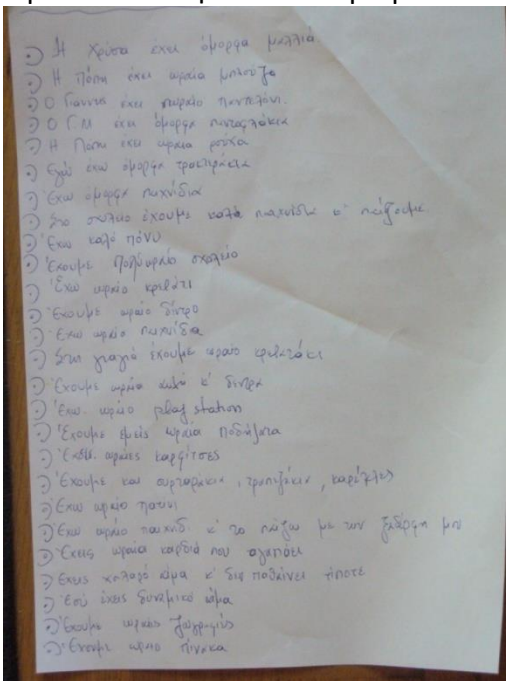 Η Χρύσα έχει όμορφα μαλλιά
Η Πόπη έχει ωραία μπλούζα
Ο Γιάννης έχει ωραίο παντελόνι.
Ο Γ.Μ έχει όμορφα παντοφλάκια
Η Πόπη έχει ωραία ρούχα
Εγώ έχω όμορφα τρακτεράκια
Έχω όμορφα παιχνίδια
Στο σχολείο έχουμε καλά παιχνίδια κ' παίζουμε
Έχω καλό πόνυ
Έχουμε πολύ ωραίο σχολείο
Έχω ωραίο κρεβάτι
Έχουμε ωραίο δέντρο
Έχω ωραίο παιχνίδια
Στη γιαγιά έχουμε ωραίο κρεβατάκι
Έχουμε ωραία κ' δέντρα
Έχω ωραίο play station
Έχουμε εμείς ωραία ποδήλατα
ωραίες καρφίτσες
Έχουμε και συρταράκια, τραπεζάκια, καρέκλες
Έχω ωραίο πατίνι
Έχω ωραίο παιχνίδι κ' το παίζω με τον ξάδερφη μου
Έχεις ωραία καρδιά που αγαπάει
Έχεις χαλαρό αίμα κ' δεν παθαίνει τίποτε
Εσύ έχεις δυναμικό αίμα
Έχουμε ωραίες ζωγραφιές
Έχουμε ωραίο πίνακα